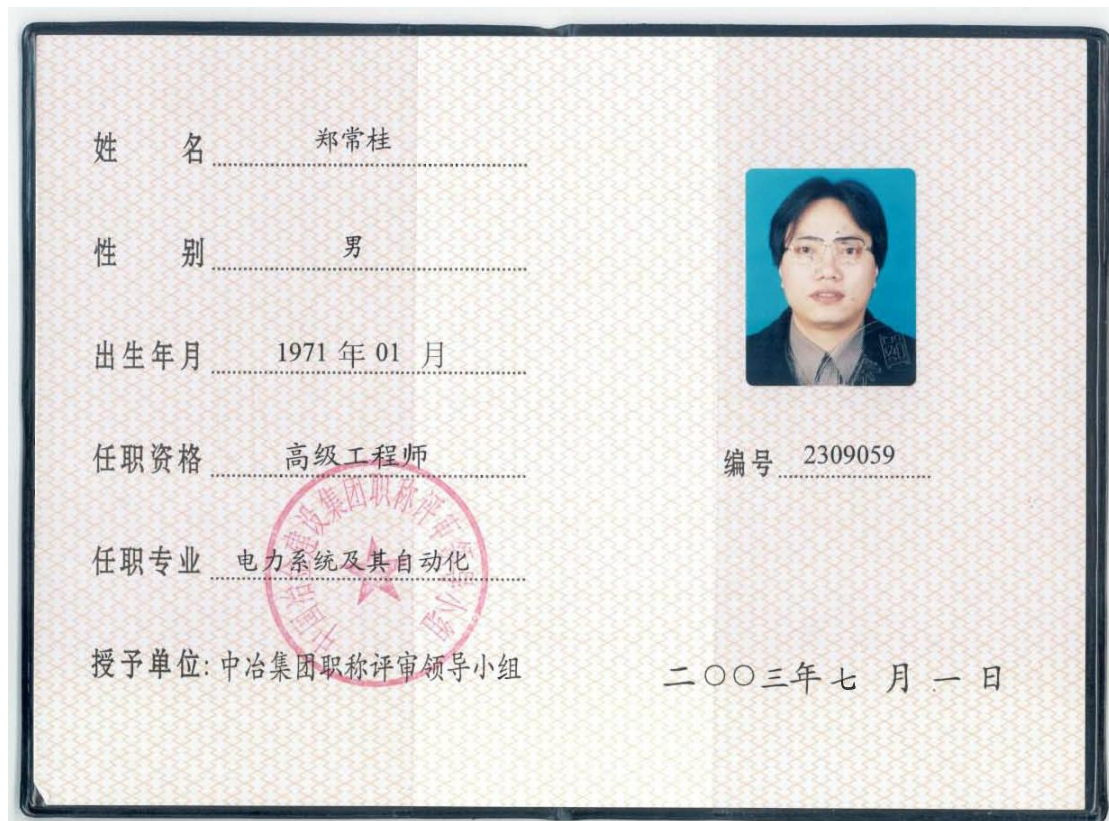 姓 名 郑常桂
性 别 男
出生年月 1971 年 01 月
任职资格 高级工程师
任职专业 电力系统及其自动化
授予单位: 中冶集团职称评审领导小组
中国冶金建设集团职称评审领导小组
编号 2309059
二〇〇三年七月一日